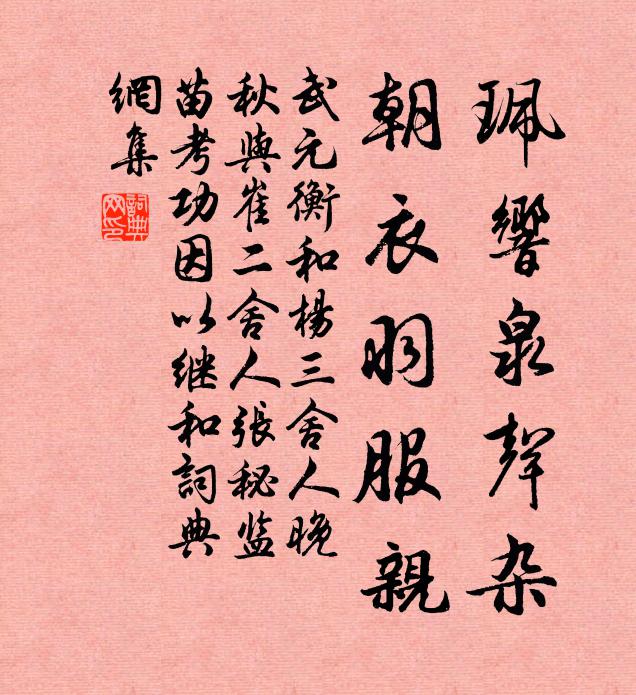 珮響泉聲杂
朝衣羽服親
武元衡和楊三舍人晚
秋與崔二舍人張秘监
苗考功因以继和詞典
網集
詞典网印